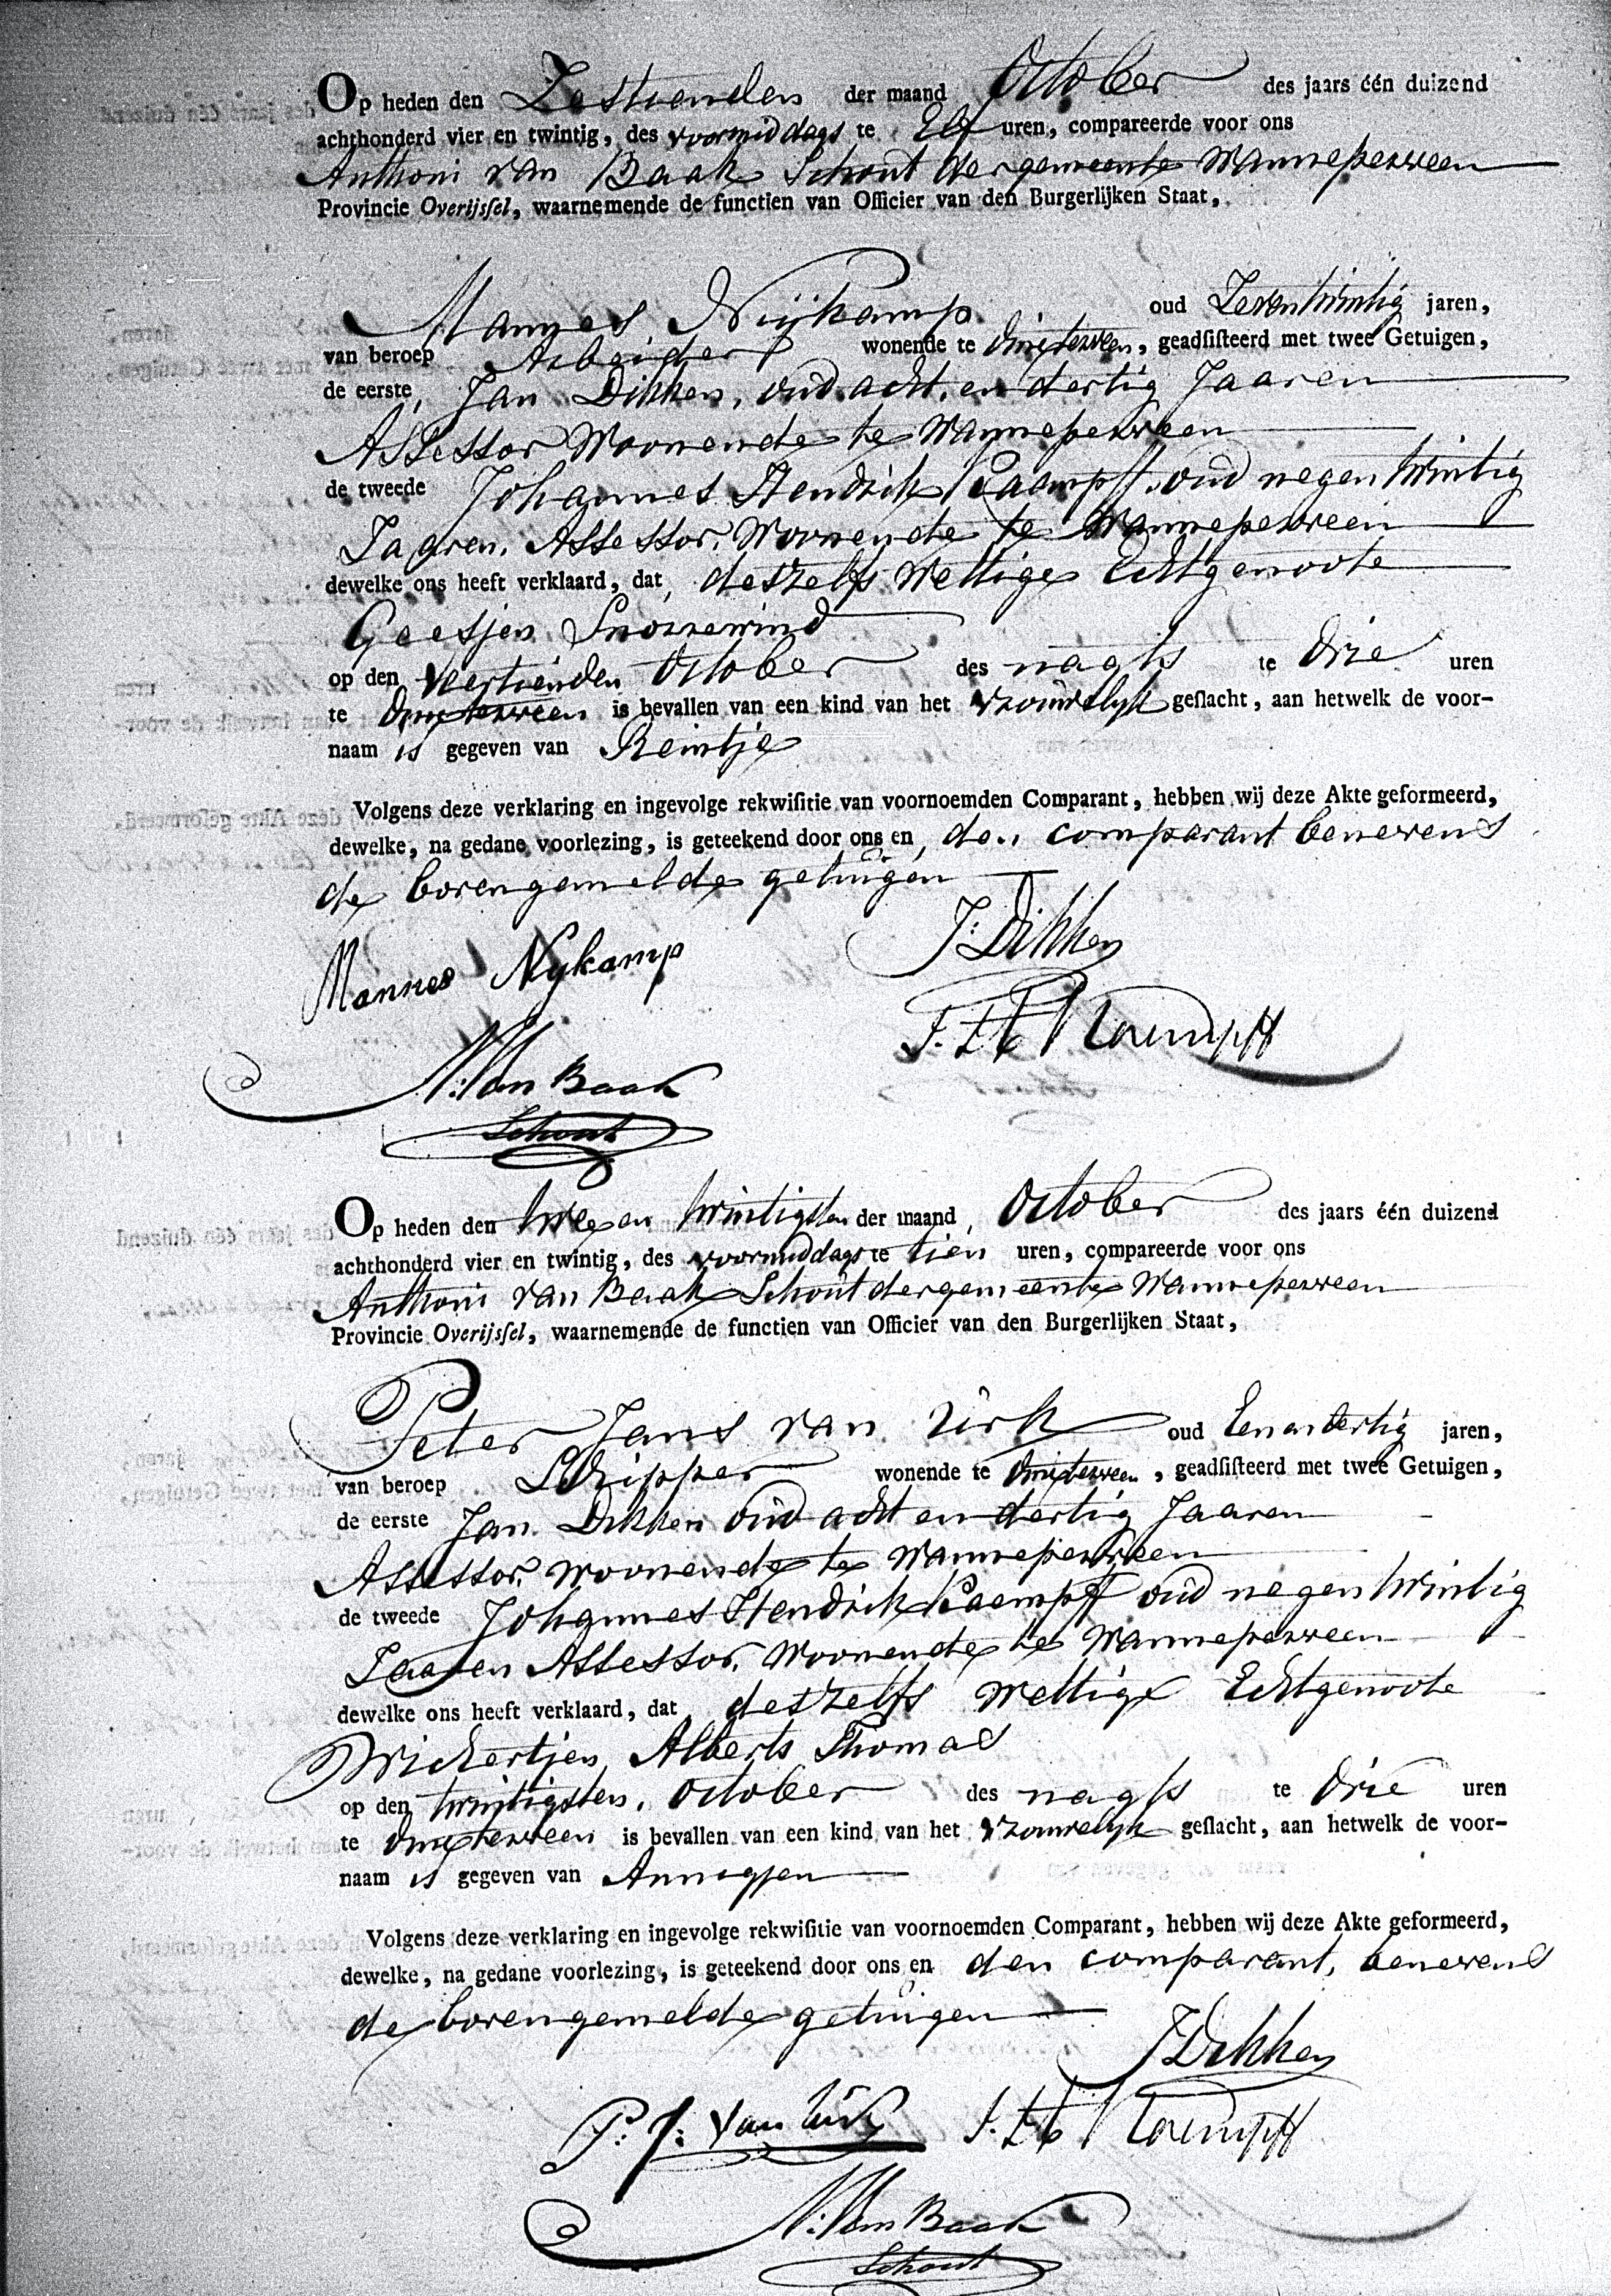 Op heden den Zestienden der maand October des jaars één duizend
achthonderd vier en twintig, des voormiddags te Elf uren, compareerde voor ons
Anthoni van Baak Schout der gemeente Wanneperveen
Provincie Overijssel, waarnemende de functien van Officier van den Burgerlijken Staat,
Mannes Nijkamp oud Zeventwintig jaren,
van beroep Arbeider wonende te Dinxterveen, geadsisteerd met twee Getuigen,
de eerste, Jan Dikken, oud acht en dertig Jaaren
Assessor Woonende te Wanneperveen
de tweede Johannes Hendrik Kaempff oud negentwintig
Jaaren, Assessor, Woonende te Wanneperveen
dewelke ons heeft verklaard, dat deszelfs Wettige Echtgenoote
Geesjen Snorrewind
op den Veertienden October des nagts te Drie uren
te Dinxterveen is bevallen van een kind van het vrouwelyk geslacht, aan hetwelk de voor-
naam is gegeven van Reintje
Volgens deze verklaring en ingevolge rekwisitie van voornoemden Comparant, hebben wij deze Akte geformeerd,
dewelke, na gedane voorlezing, is geteekend door ons en den comparant benevens
de bovengemelde getuigen
J: Dikken
Mannes Nykamp
J. H. Kaempff
A: Van Baak
Schout
Op heden den tweeen twintigsten der maand October des jaars één duizend
achthonderd vier en twintig, des voormiddags te tien uren, compareerde voor ons
Anthoni van Baak Schout der gemeente Wanneperveen
Provincie Overijssel, waarnemende de functien van Officier van den Burgerlijken Staat,
Peter Jans van Urk oud Eenendertig jaren,
van beroep Schipper wonende te Dinxterveen, geadsisteerd met twee Getuigen,
de eerste Jan Dikken oud acht en dertig Jaaren
Assessor, Woonende te Wanneperveen
de tweede Johannes Hendrik Kaempff oud negentwintig
Jaaren Assessor, Woonende te Wanneperveen
dewelke ons heeft verklaard, dat deszelfs Wettige Echtgenoote
Wichertjen Alberts Thomas
op den twintigsten, October des nagts te Drie uren
te Dinxterveen is bevallen van een kind van het vrouwelyk geslacht, aan hetwelk de voor-
naam is gegeven van Annigjen
Volgens deze verklaring en ingevolge rekwisitie van voornoemden Comparant, hebben wij deze Akte geformeerd,
dewelke, na gedane voorlezing, is geteekend door ons en den comparant, benevens
de bovengemelde getuigen
J Dikken
P: J: van Urk J. H. Kaempff
A: Van Baak
Schout